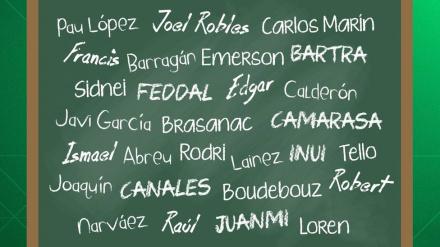 Pau López Joel Robles Carlos Marín
Francis Barragán Emerson BARTRA
Sidnei FEDDAL Edgar Calderón
Javi García Brasanac CAMARASA
Ismael Abreu Rodri Lainez INUI Tello
Joaquín CANALES Boudebouz Robert
Narváez Raúl JUANMI Loren